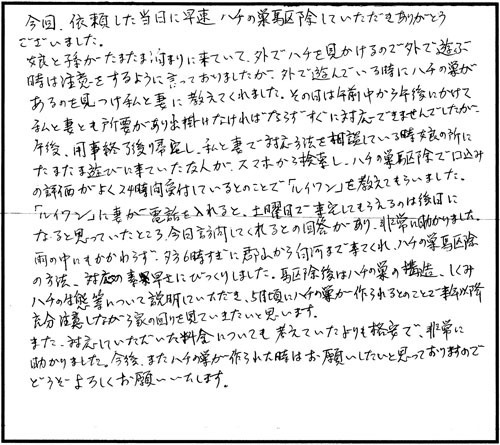 今回、依頼した当日に早速ハチの巣駆除していただきありがとう
ございました。
娘と孫がたまたま泊まりに来ていて、外でハチを見かけるので外で遊ぶ
時は注意をするように言っておりましたが、外で遊んでいる時にハチの巣が
あるのを見つけ私と妻に教えてくれました。その日は午前中から午後にかけて
私と妻とも所要があり出掛けなければならずすぐに対応できませんでしたが、
午後、用事終了後り帰宅し、私と妻で対応方法を相談している時娘の所に
たまたま遊びに来ていた友人が、スマホから検索し、ハチの巣駆除で口込み
の評価がよく24時間受付しているとのことで「ルイワン」を教えてもらいました。
「ルイワン」に妻が電話を入れると、土曜日で来宅してもらえるのは後日に
なると思っていたところ、今日訪問してくれるとの回答があり、非常に助かりました。
雨の中にもかかわらず、夕方6時すぎに郡山から白河まで来てくれ、ハチの巣駆除
の方法、対応の素早さにびっくりしました。駆除後はハチの巣の構造、しくみ
ハチの生態等について説明していただき、5月頃にハチの巣が作られるとのことで来年以降
充分注意しながら家の回りを見ていきたいと思います。
また、対応していただいた料金についても考えていたよりも格安で、非常に
助かりました。今後、またハチの巣が作られた時はお願いしたいと思っておりますので
どうぞよろしくお願いいたします。